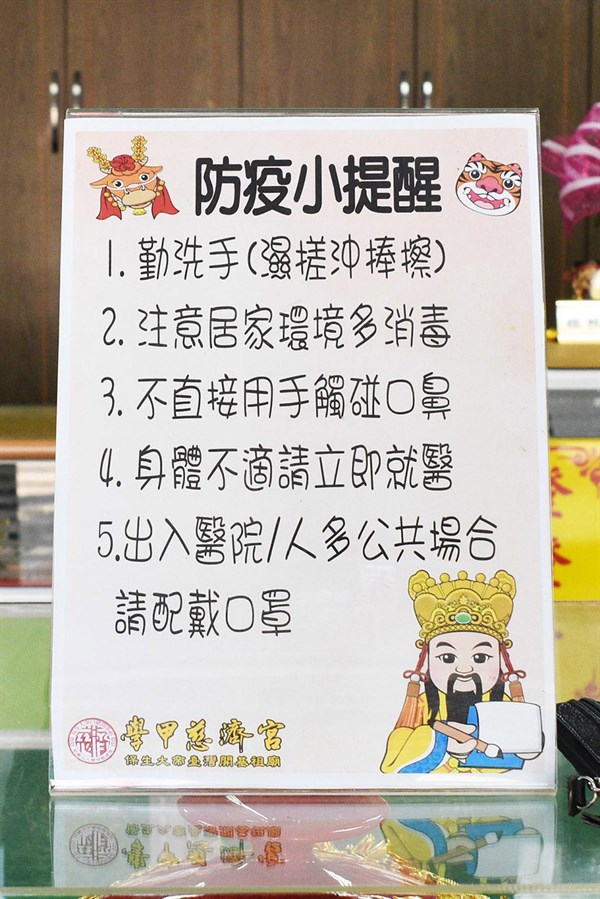 防疫小提醒
1. 勤洗手(濕搓沖捧擦)
2. 注意居家環境多消毒
3. 不直接用手觸碰口鼻
4. 身體不適請立即就醫
5.出入醫院/人多公共場合
請配戴口罩
學甲慈濟宮
保生大帝臺灣開基祖廟